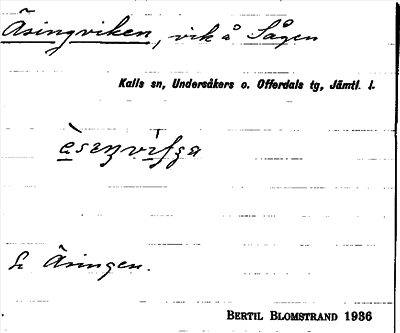 Åsingviken, vik å Sågen
Kalls sn, Undersåkers o. Offerdals tg, Jämtl. l.
Se Åsingen.
BERTIL BLOMSTRAND 1936